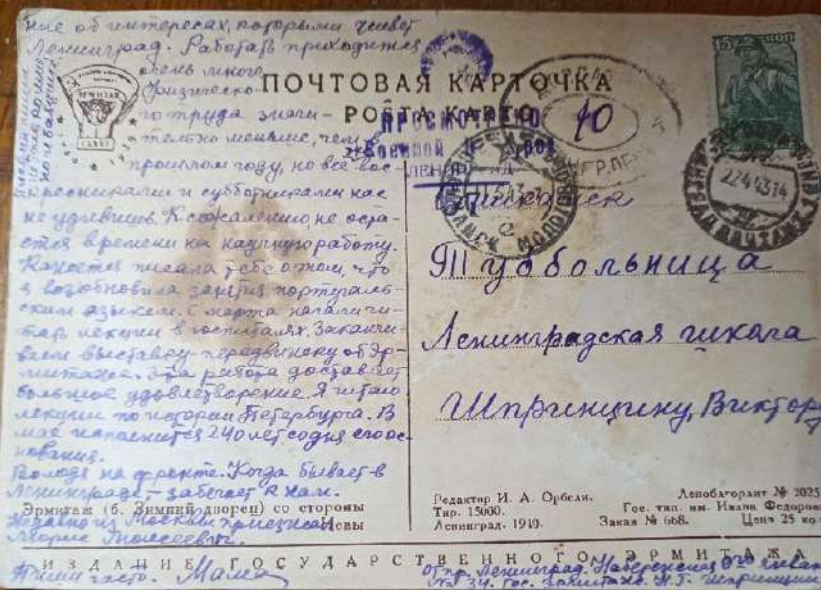 ние об интересах, которыми живет
Ленинград. Работать приходится
очень много.
Физическо-
го труда значи-
тельно меньше, чем в
прошлом году, но все вос-
кресниками и субботниками нас
не удивишь. К сожалению, не оста-
ется времени на научную работу.
Кажется писала тебе о том, что
я возобновила занятия португаль-
ским языком. С марта начали чи-
тать лекции в госпиталях. Заканчи-
ваем выставку-передвижку об Эр-
митаже. Эта работа доставляет
большое удовлетворение. Я читаю
лекции по истории Петербурга. В
мае исполнится 240 лет со дня его ос-
нования.
Володя на фронте. Когда бывает в
Ленинграде – забегает к нам.
Недавно из Москвы
Моисеевич.
Пиши часто. Мама
Эрмитаж (б. Зимний дворец) со стороны
Невы
ПОЧТОВАЯ КАРТОЧКА
POŜTA KARTO
ПРОСМОТРЕНО
Военной Цензурой
ЛЕНИНГРАД
10
МОЛОТОВ
15 КОП
2244314
Тубольница
Ленинградская школа
Шпринцину, Виктору
Редактор И. А. Орбели.
Тир. 15000.
Ленинград. 1940.
Ленобгорлит № 2025
Гос. тип. им. Ивана Федоров
Заказ № 668. Цена 25 ко
ИЗДАНИЕ ГОСУДАРСТВЕННОГО ЭРМИТАЖА
Отпр. Ленинград. Набережная 9го января
№ 34. Гос. Эрмитаж. Н.Г. Шпринцин